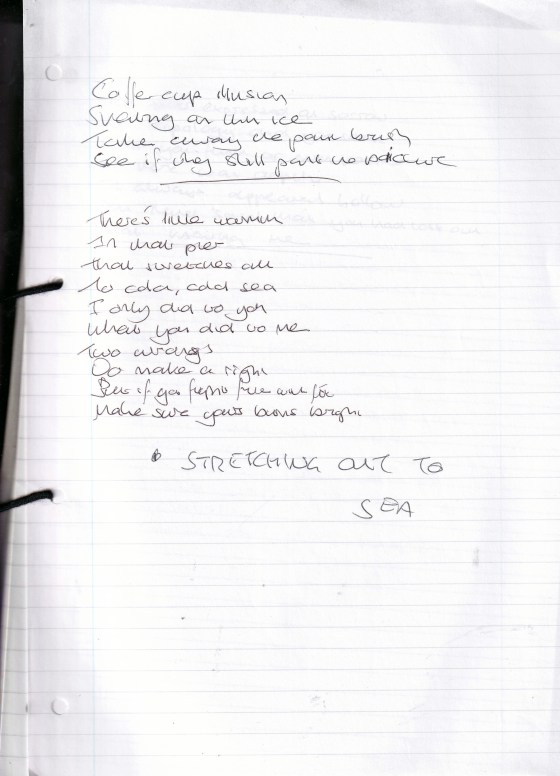 Coffee cup illusion
Skating on thin ice
Take away the paint brush
See if they still paint the picture
There's little warmth
In that pier
That stretches out
To cold, cold sea
I only did to you
What you did to me
Two wrongs
Do make a right
But if you fight fire with fire
Make sure yours burns bright
STRETCHING OUT TO
SEA